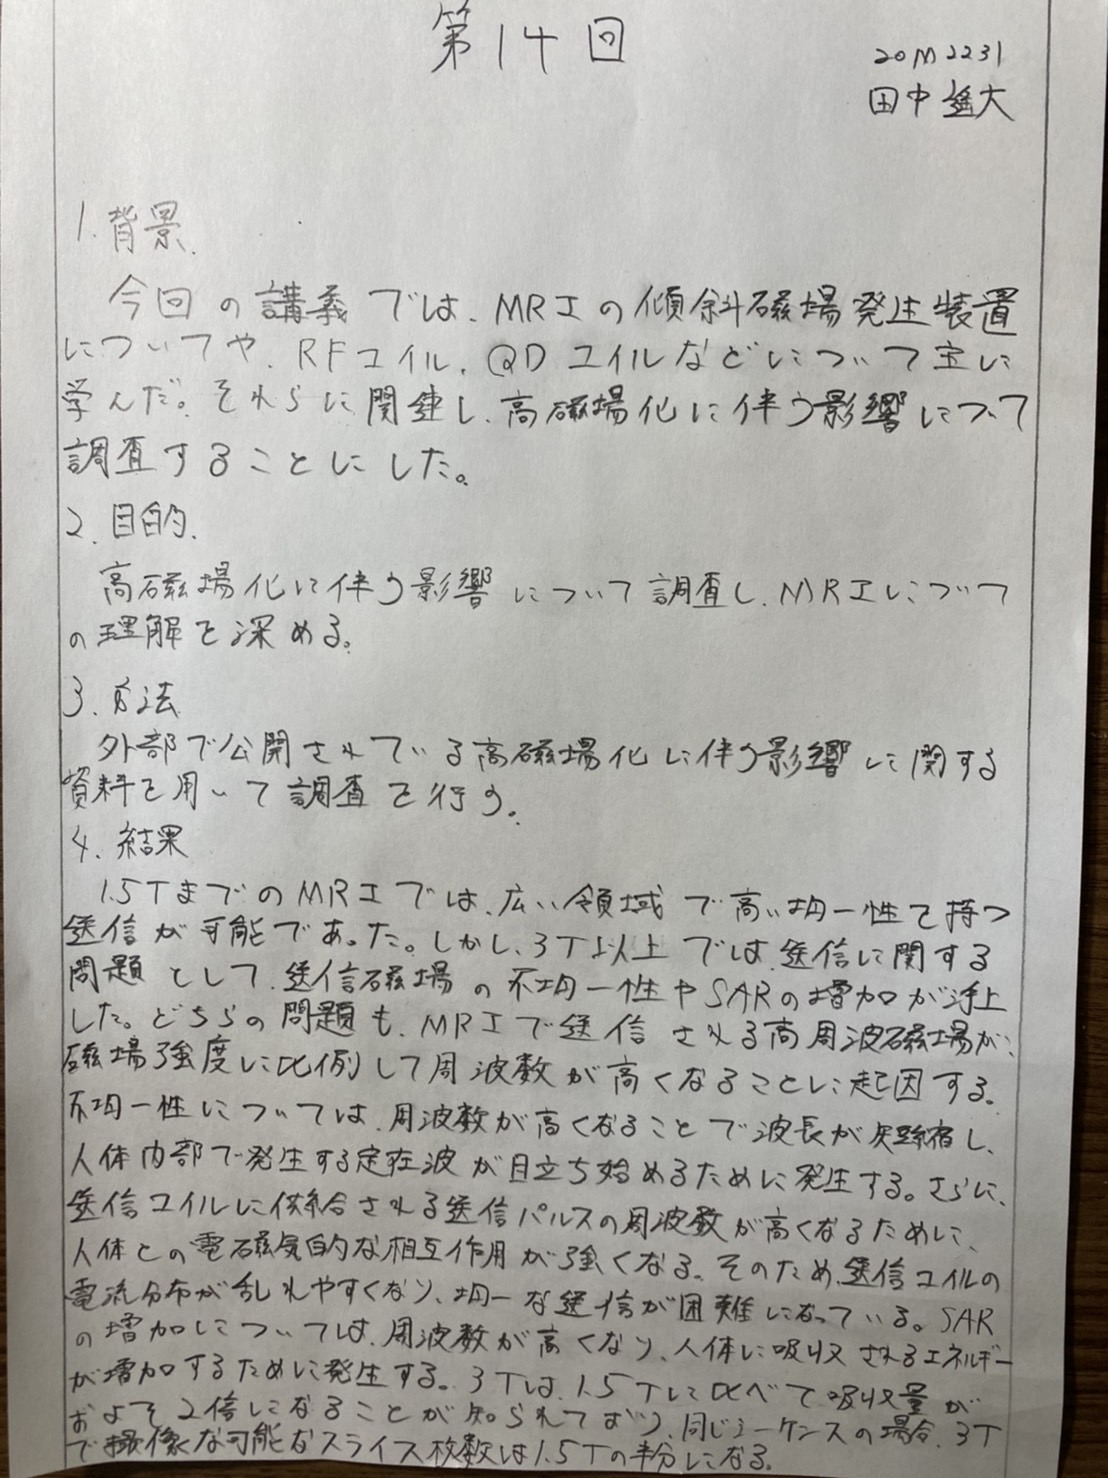 第14回
20M2231
田中遥大
1. 背景.
今回の講義では、MRIの傾斜磁場発生装置
についてや、RFコイル、QDコイルなどについて主に
学んだ。それらに関連し、高磁場化に伴う影響について
調査することにした。
2. 目的.
高磁場化に伴う影響について調査し、MRIについて
の理解を深める。
3. 方法
外部で公開されている高磁場化に伴う影響に関する
資料を用いて調査を行う。
4. 結果
1.5TまでのMRIでは、広い領域で高い均一性を持つ
送信が可能であった。しかし、3T以上では、送信に関する
問題として、送信磁場の不均一性やSARの増加が浮上
した。どちらの問題も、MRIで送信される高周波磁場が、
磁場強度に比例して周波数が高くなることに起因する。
不均一性については、周波数が高くなることで波長が短縮し、
人体内部で発生する定在波が目立ち始めるために発生する。さらに、
送信コイルに供給される送信パルスの周波数が高くなるために、
人体との電磁気的な相互作用が強くなる。そのため送信コイルの
電流分布が乱れやすくなり、均一な送信が困難になっている。SAR
の増加については、周波数が高くなり、人体に吸収されるエネルギー
が増加するために発生する。3Tは、1.5Tに比べて吸収量が
およそ2倍になることが知られており、同じシーケンスの場合、3T
で撮像な可能なスライス枚数は1.5Tの半分になる。